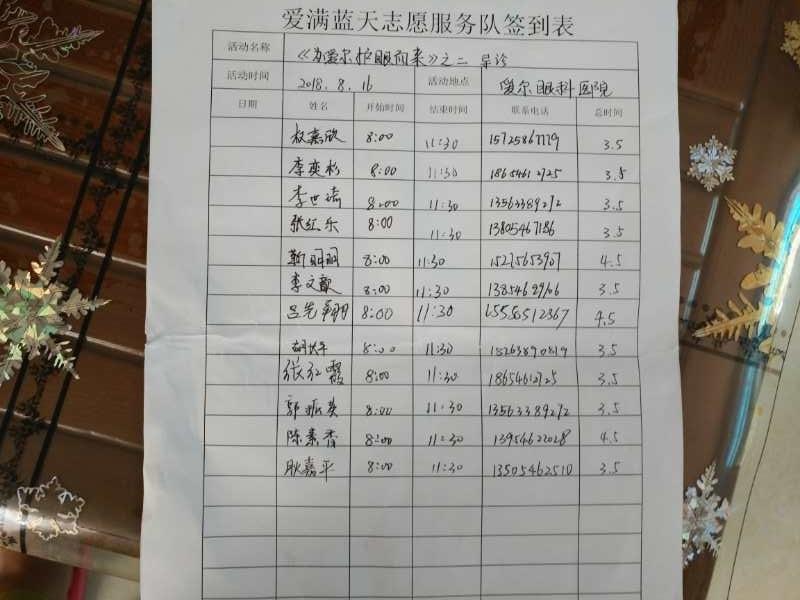 爱满蓝天志愿服务队签到表
活动名称 《为爱尔护眼而来》之二 导诊
活动时间 2018.8.16 活动地点 爱尔眼科医院
日期 姓名 开始时间 结束时间 联系电话 总时间
权嘉欣 8:00 11:30 3.5
李奕杉 8:00 11:30 18654612725 3.5
李世琦 8:00 11:30 13563389292 3.5
张红乐 8:00 11:30 13805467186 3.5
靳丽丽 8:00 11:30 15275653907 4.5
李文歆 8:00 11:30 3.5
吕先翱 8:00 11:30 15558512367 4.5
8:00 11:30 3.5
张红霞 8:00 11:30 18654612725 3.5
郭振英 8:00 11:30 13563389292 3.5
陈素香 8:00 11:30 13954622028 4.5
耿嘉平 8:00 11:30 13505462510 3.5